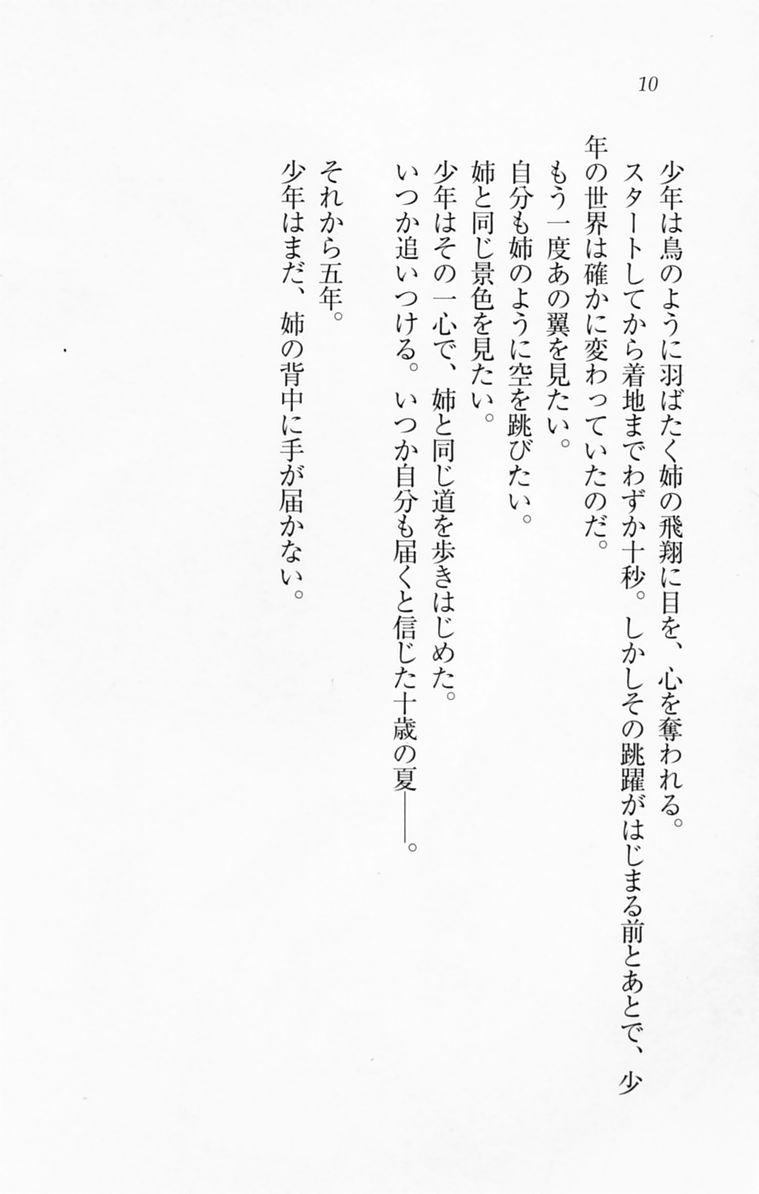 10
少年は鳥のように羽ばたく姉の飛翔に目を、心を奪われる。
スタートしてから着地までわずか十秒。しかしその跳躍がはじまる前とあとで、少
年の世界は確かに変わっていたのだ。
もう一度あの翼を見たい。
自分も姉のように空を跳びたい。
姉と同じ景色を見たい。
少年はその一心で、姉と同じ道を歩きはじめた。
いつか追いつける。いつか自分も届くと信じた十歳の夏――。
それから五年。
少年はまだ、姉の背中に手が届かない。